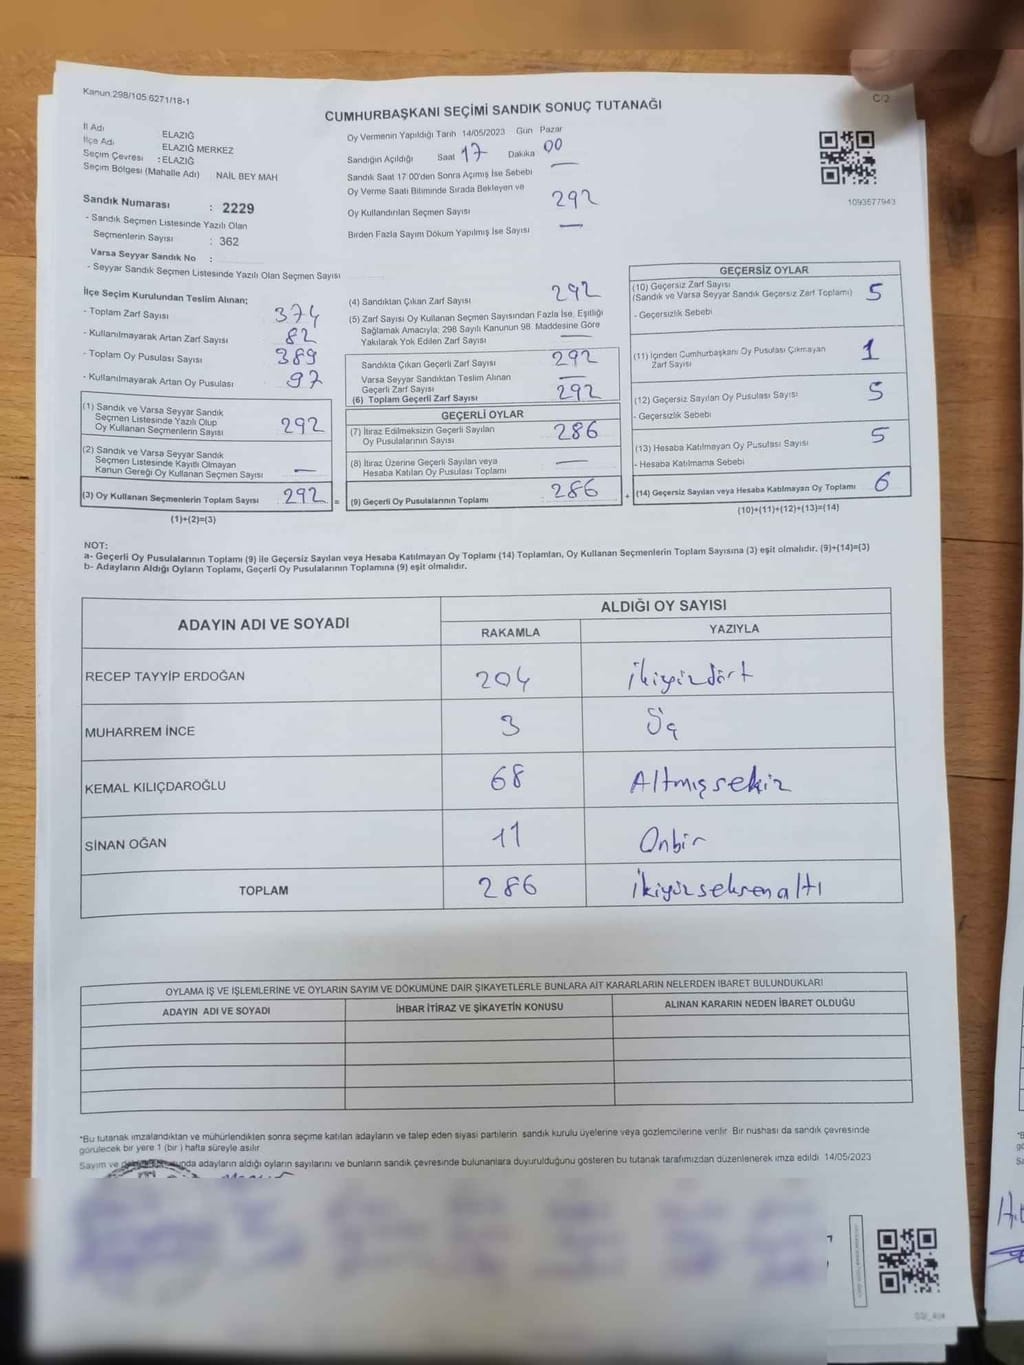 Kanun.298/105.6271/18-1
C/2
CUMHURBAŞKANI SEÇİMİ SANDIK SONUÇ TUTANAĞI
İl Adı ELAZIĞ
İlçe Adı ELAZIĞ MERKEZ
Seçim Çevresi : ELAZIĞ
Seçim Bölgesi (Mahalle Adı) NAİL BEY MAH
Sandık Numarası : 2229
- Sandık Seçmen Listesinde Yazılı Olan
Seçmenlerin Sayısı : 362
Varsa Seyyar Sandık No :
- Seyyar Sandık Seçmen Listesinde Yazılı Olan Seçmen Sayısı
Oy Vermenin Yapıldığı Tarih 14/05/2023 Gün Pazar
Sandığın Açıldığı Saat 17 Dakika 00
Sandık Saat 17:00'den Sonra Açımış İse Sebebi —
Oy Verme Saati Bitiminde Sırada Bekleyen ve
Oy Kullandırılan Seçmen Sayısı 292
Birden Fazla Sayım Döküm Yapılmış İse Sayısı —
1093577943
İlçe Seçim Kurulundan Teslim Alınan;
- Toplam Zarf Sayısı 374
- Kullanılmayarak Artan Zarf Sayısı 82
- Toplam Oy Pusulası Sayısı 389
- Kullanılmayarak Artan Oy Pusulası 97
(1) Sandık ve Varsa Seyyar Sandık
Seçmen Listesinde Yazılı Olup
Oy Kullanan Seçmenlerin Sayısı 292
(2) Sandık ve Varsa Seyyar Sandık
Seçmen Listesinde Kayıtlı Olmayan
Kanun Gereği Oy Kullanan Seçmen Sayısı —
(3) Oy Kullanan Seçmenlerin Toplam Sayısı 292 =
(1)+(2)=(3)
(4) Sandıktan Çıkan Zarf Sayısı 292
(5) Zarf Sayısı Oy Kullanan Seçmen Sayısından Fazla İse, Eşitliği
Sağlamak Amacıyla; 298 Sayılı Kanunun 98. Maddesine Göre
Yakılarak Yok Edilen Zarf Sayısı —
Sandıkta Çıkan Geçerli Zarf Sayısı 292
Varsa Seyyar Sandıktan Teslim Alınan
Geçerli Zarf Sayısı —
(6) Toplam Geçerli Zarf Sayısı 292
GEÇERLİ OYLAR
(7) İtiraz Edilmeksizin Geçerli Sayılan
Oy Pusulalarının Sayısı 286
(8) İtiraz Üzerine Geçerli Sayılan veya
Hesaba Katılan Oy Pusulası Toplamı —
(9) Geçerli Oy Pusulalarının Toplamı : 286 +
GEÇERSİZ OYLAR
(10) Geçersiz Zarf Sayısı
(Sandık ve Varsa Seyyar Sandık Geçersiz Zarf Toplamı) 5
- Geçersizlik Sebebi
(11) İçinden Cumhurbaşkanı Oy Pusulası Çıkmayan
Zarf Sayısı 1
(12) Geçersiz Sayılan Oy Pusulası Sayısı 5
- Geçersizlik Sebebi
(13) Hesaba Katılmayan Oy Pusulası Sayısı 5
- Hesaba Katılmama Sebebi
(14) Geçersiz Sayılan veya Hesaba Katılmayan Oy Toplamı 6
(10)+(11)+(12)+(13)=(14)
NOT:
a- Geçerli Oy Pusulalarının Toplamı (9) ile Geçersiz Sayılan veya Hesaba Katılmayan Oy Toplamı (14) Toplamları, Oy Kullanan Seçmenlerin Toplam Sayısına (3) eşit olmalıdır. (9)+(14)=(3)
b- Adayların Aldığı Oyların Toplamı, Geçerli Oy Pusulalarının Toplamına (9) eşit olmalıdır.
ADAYIN ADI VE SOYADI ALDIĞI OY SAYISI
RAKAMLA YAZIYLA
RECEP TAYYİP ERDOĞAN 204 İkiyüzdört
MUHARREM İNCE 3 Üç
KEMAL KILIÇDAROĞLU 68 Altmışsekiz
SİNAN OĞAN 11 Onbir
TOPLAM 286 İkiyüzseksenaltı
OYLAMA İŞ VE İŞLEMLERİNE VE OYLARIN SAYIM VE DÖKÜMÜNE DAİR ŞİKAYETLERLE BUNLARA AİT KARARLARIN NELERDEN İBARET BULUNDUKLARI
ADAYIN ADI VE SOYADI İHBAR İTİRAZ VE ŞİKAYETİN KONUSU ALINAN KARARIN NEDEN İBARET OLDUĞU
*Bu tutanak imzalandıktan ve mühürlendikten sonra seçime katılan adayların ve talep eden siyasi partilerin sandık kurulu üyelerine veya gözlemcilerine verilir. Bir nushası da sandık çevresinde
görülecek bir yere 1 (bir) hafta süreyle asılır.
Sayım ve adayların aldığı oyların sayılarını ve bunların sandık çevresinde bulunanlara duyurulduğunu gösteren bu tutanak tarafımızdan düzenlenerek imza edildi. 14/05/2023